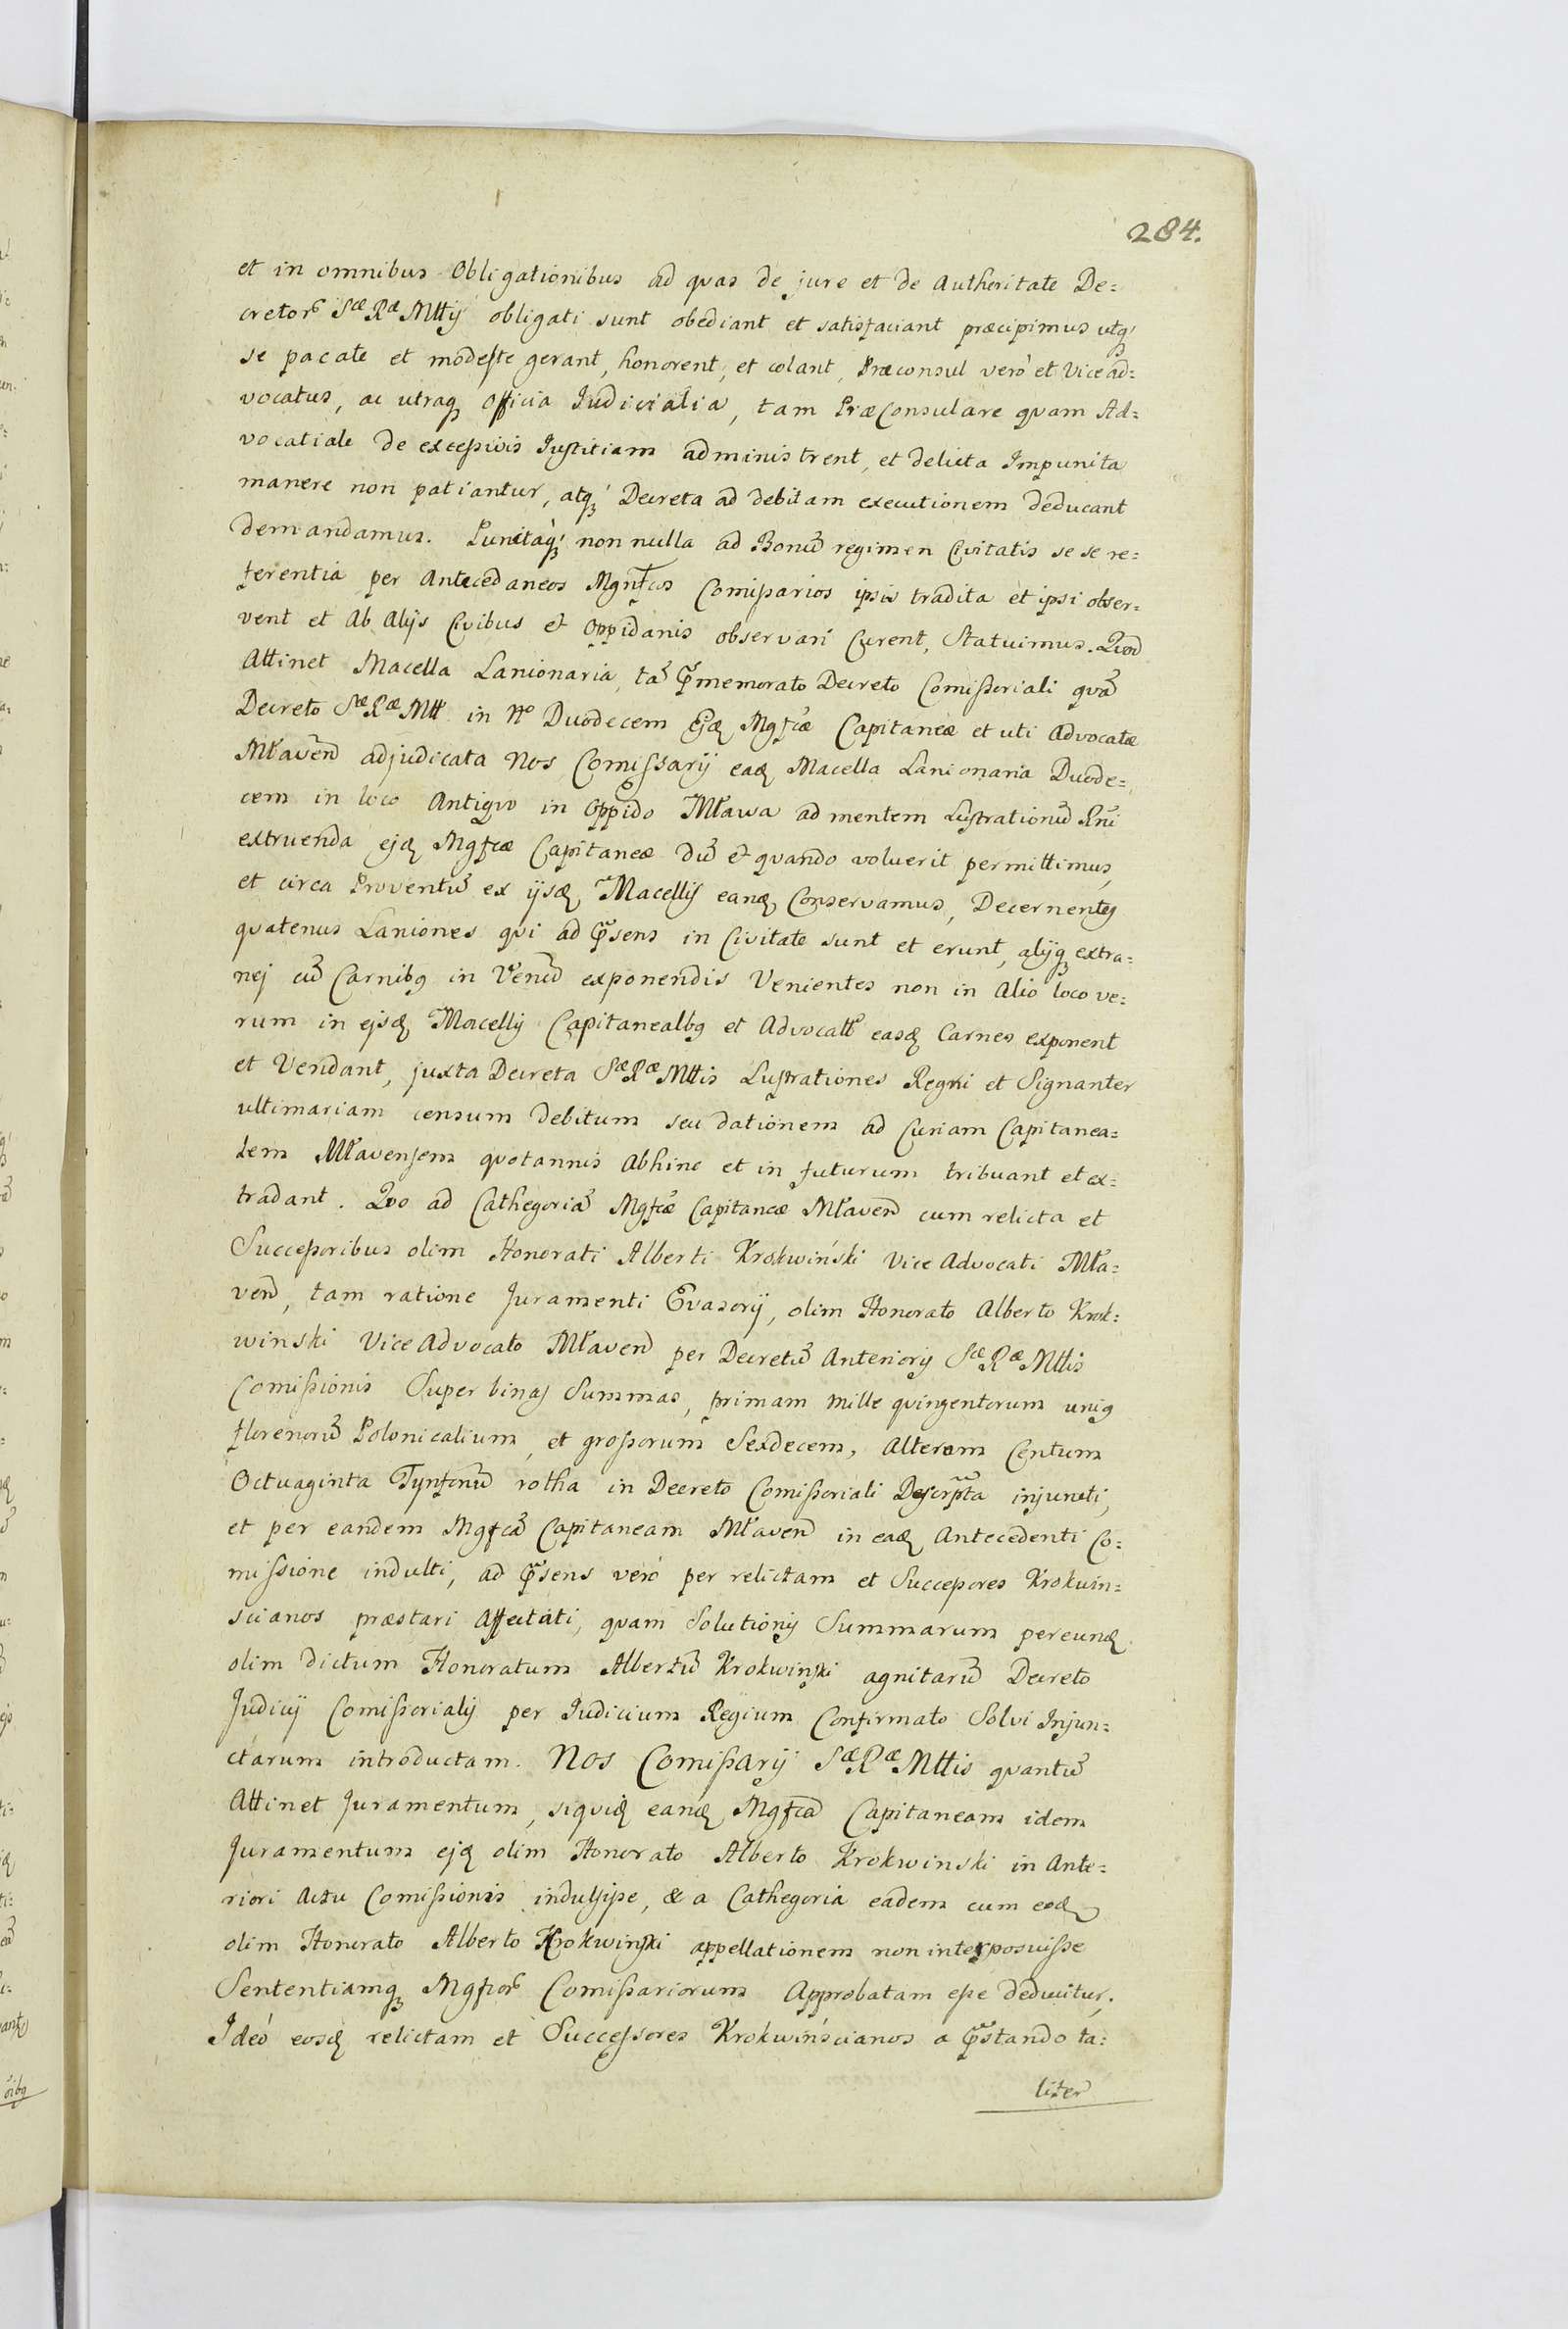 284.
et in omnibus Obligationibus ad quas de jure et de Autheritate De=
cretor Sæ Ræ Mttij obligati sunt obediant et satisfaciant præcipimus utq
se pacate et modeste gerant, honorent, et colant, Præconsul verò et Vicead=
vocatus, ac utraq officia Judicialia, tam PræConsulare quam Ad=
vocatiale de excessivis Justitiam administrent, et delicta Impunita
manere non patiantur, atq Decreta ad debitam executionem deducant
demandamus. Punctaq non nulla ad Bonũ regimen Civitatis se se re=
ferentia per Antecedaneos Mgnfcos Comissarios ipsis tradita et ipsi obser=
vent et Ab Alijs Civibus et Oppidanis observari Curent, Statuimus. Quod
Attinet Macella Lanionaria, tã Pmemorato Decreto Comissoriali quã
Decreto Sæ Ræ Mtt in No Duodecem Ejd Mgfcæ Capitaneæ et uti Advocatæ
Mławen adjudicata Nos Comissarij ead Macella Lanionaria Duode=
cem in loco Antiquo in Oppido Mława ad mentem Lustrationũ Rni
extruenda ejd Mgfcæ Capitaneæ dũ et quando voluerit permittimus,
et circa Proventũ ex ijsd Macellis eand Conservamus, Decernentes
quatenus Laniones qui ad Psens in Civitate sunt et erunt, alijq extra=
nej cũ Carnibq in Venũ exponendis Venientes non in Alio loco ve=
rum in ejsd Macellis Capitanealbq et Advocatt easd Carnes exponent
et Vendant, juxta Decreta Sæ Ræ Mttis Lustrationes Regni et Signanter
ultimariam censum debitum seu dationem ad Curiam Capitanea=
lem Mławensem quotannis Abhinc et in futurum tribuant et ex=
tradant. Quo ad Cathegoriã Mgfcæ Capitaneæ Mławen cum relicta et
Successoribus olim Honorati Alberti Krokwiński Vice Advocati Mła=
wen, tam ratione Juramenti Evasorij, olim Honorato Alberto Krok=
winski Vice Advocato Mławen per Decretũ Anterioris Sæ Ræ Mttis
Comissionis Super binas Summas, primam Mille quingentorum uniq
florenorũ Polonicalium et grossorum Sexdecem, Alteram Centum
Octuaginta Tynfonũ rotha in Decreto Comissoriali Descrpta injuncti,
et per eandem Mgfcã Capitaneam Mławen in ead Antecedenti Co=
missione indulti, ad Psens verò per relictam et Successores Krokwin=
scianos præstari Affectati, quam Solutionis Summarum per eund
olim dictum Honoratum Albertũ Krokwinski agnitarũ Decreto
Judicij Comissorialis per Judicium Regium Confirmato Solvi Injun=
ctarum introductam. Nos Comissarij Sæ Ræ Mttis quantũ
Attinet Juramentum, siquid eand Mgfcã Capitaneam idem
Juramentum ejd olim Honorato Alberto Krokwinski in Ante=
riori Actu Comissionis indulsisse, & a Cathegoria eadem cum eod
olim Honorato Alberto Krokwinski appellationem non interposuisse
Sententiamq Mgfcor Comissariorum Approbatam esse deducitur.
Ideò eosd relictam et Successores Krokwińscianos a Pstando ta=
liter